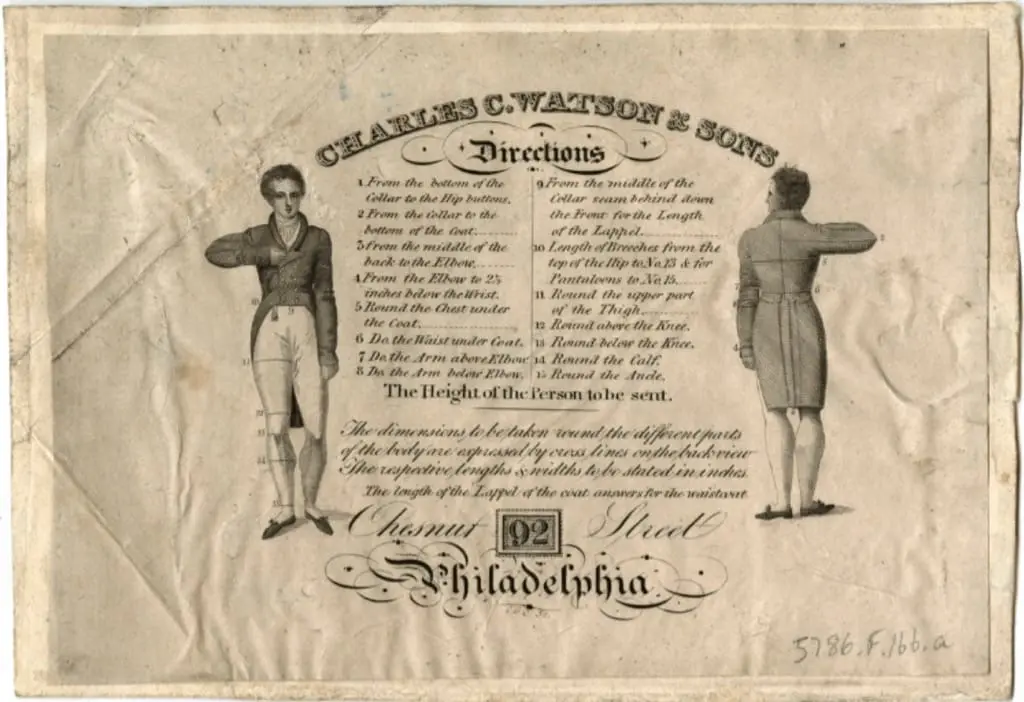 CHARLES C. WATSON & SONS
Directions
1 From the bottom of the
Collar to the Hip buttons.
2 From the Collar to the
bottom of the Coat.
3 From the middle of the
back to the Elbow.
4 From the Elbow to 2½
inches below the Wrist.
5 Round the Chest under
the Coat.
6 Do. the Waist under Coat.
7 Do. the Arm above Elbow
8 Do. the Arm below Elbow.
9 From the middle of the
Collar seam behind down
the Front for the Length
of the Lappel.
10 Length of Breeches from the
top of the Hip to No. 13 & for
Pantaloons to No. 15.
11 Round the upper part
of the Thigh.
12 Round above the Knee.
13 Round below the Knee.
14 Round the Calf.
15 Round the Ancle.
The Height of the Person to be sent.
The dimensions to be taken round the different parts
of the body are expressed by cross lines on the back view
The respective lengths & widths to be stated in inches.
The length of the Lappel of the coat answers for the waistcoat
Chesnut 92 Street
Philadelphia
5786.F.166.a